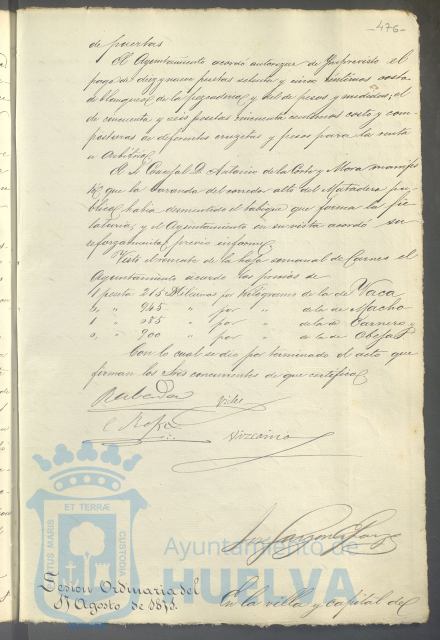 -476-
de puertas
El Ayuntamiento acordó autorizar de Imprevisto el
pago de diez y nueve pesetas setenta y cinco céntimos costo
de blanqueo de la pescadería y del de pesos y medidas; el
de cincuenta y seis pesetas cincuenta céntimos costo y com
posturas de crucetas y pesos para la renta
de Arbitrios
El Sr. Concejal D. Antonio de la Corte y Mora manifes
tó que la baranda del corredor alto del Matadero pú
blico había desmentido el tabique que forma la
y el Ayuntamiento en su vista acordó su
previo informe
Visto el remate de la hoja semanal de Carnes el
Ayuntamiento acordó los precios de
1 peseta 215 Milésimas por Kilogramo de la de Vaca
" 945 " por " de la de Macho
1 " 055 " por " de la de Carnero y
" 900 " por " de la de Obeja
Con lo cual se dio por terminado el acto que
forman los Sres concurrentes de que certifico
Vizcaino
ET TERRÆ
PORTUS MARIS
CUSTODIA
Ayuntamiento de
HUELVA
Sesión Ordinaria del
17 Agosto de 1871.
En la villa y capital de